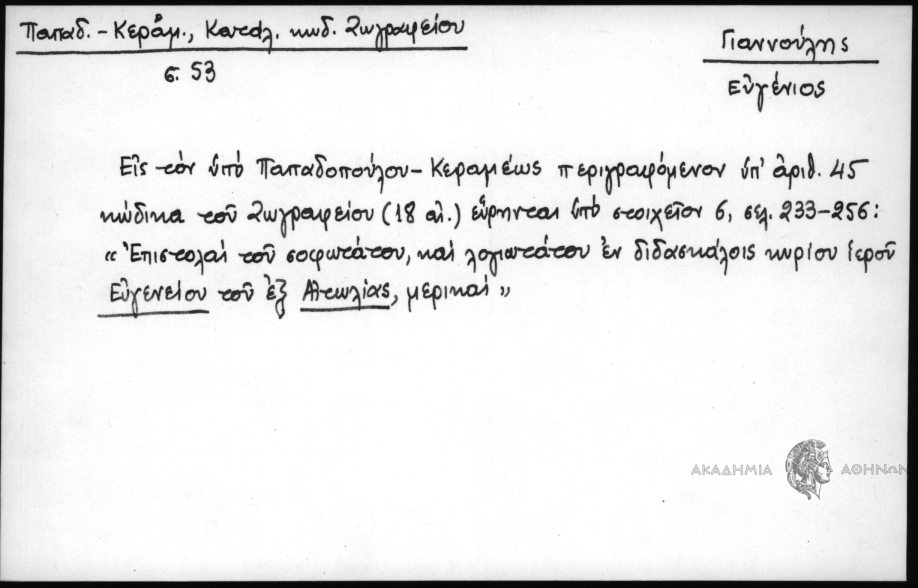 Παπαδ. - Κεράμ., Καταλ. κωδ. Ζωγραφείου
σ. 53
Γιαννούλης
Εὐγένιος
Εἰς τὸν ὑπὸ Παπαδοπούλου - Κεραμέως περιγραφόμενον ὑπ' ἀριθ. 45
κώδικα τοῦ Ζωγραφείου (18 αἰ.) εὕρηνται ὑπὸ στοιχεῖον 6, σελ. 233-256:
« Ἐπιστολαὶ τοῦ σοφωτάτου, καὶ λογιωτάτου ἐν διδασκάλοις κυρίου ἱεροῦ
Εὐγενείου τοῦ ἐξ Αἰτωλίας, μερικαὶ »
ΑΚΑΔΗΜΙΑ ΑΘΗΝΩΝ